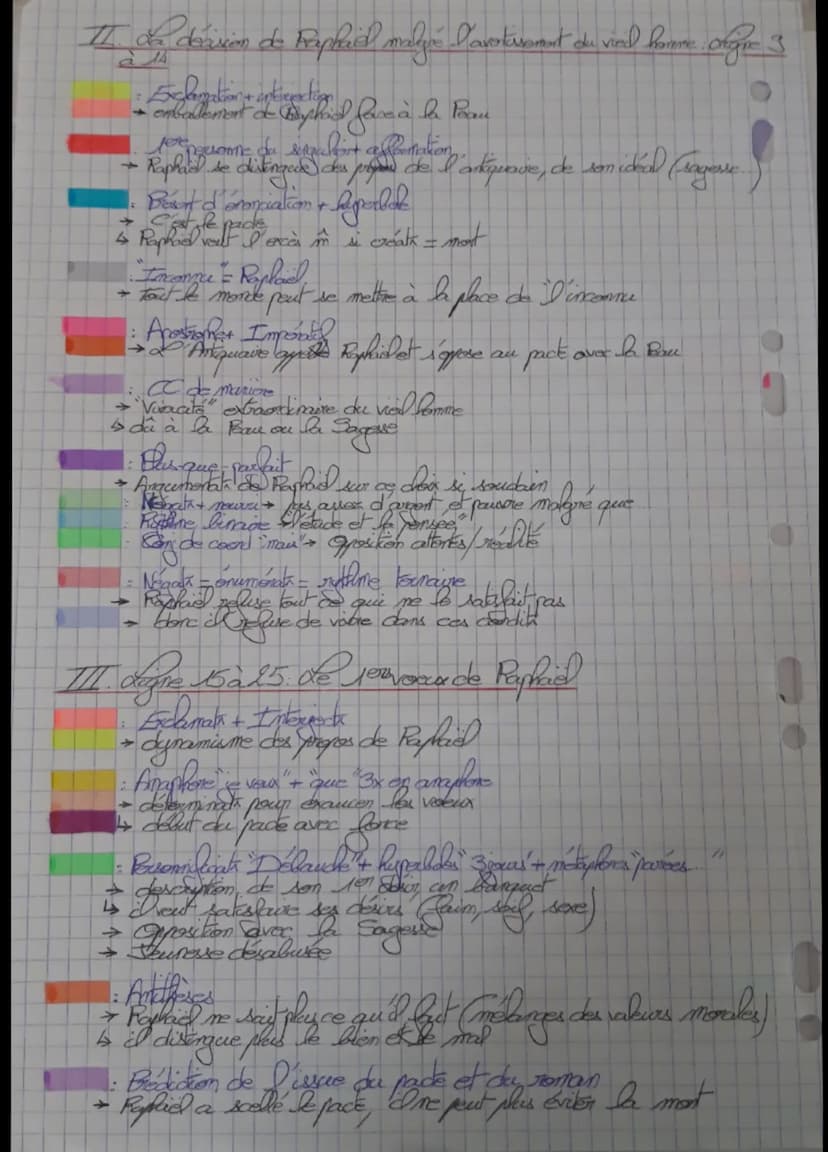 II. La décision de Raphaël malgré l'avertissement du vieil homme : ligne 3
à 14
: Exclamation + interjection
→ emballement de Raphaël face à la Peau
1ère personne du singulier + affirmation
→ Raphaël se distingue des propos de l'antiquaire, de son idéal (sagesse)
: Désir d'énonciation + hyperbole
→ C'est le pacte
↳ Raphaël veut l'excès m̂ si créatk = mort
: "Inconnu" = Raphaël
→ tout le monde peut se mettre à la place de "l'inconnu
: Apostrophe + Impératif
→ L'Antiquaire Raphaël et s'oppose au pacte avec la Peau
: CC de manière
→ "Vivacité" extraordinaire du vieil homme
↳ dû à la Peau ou la Sagesse
: Plus-que-parfait
→ Argumentatk de Raphaël sur ce choix si soudain
: Négatk + → pas assez d'argent, et pauvre malgré que
: Rythme binaire "l'étude et la pensée"
: Conj de coord "mais" → opposition attentes/réalité
: Négatk = énumératk = rythme ternaire
→ Raphaël refuse tout ce qui ne le satisfait pas
→ donc il refuse de vivre dans ces condit
III. Ligne 15 à 25. Le 1er voeux de Raphaël
: Exclamatk + Interjectk
→ dynamisme des propos de Raphaël
: Anaphore "je veux" + "que" 3x en anaphore
→ déterminatk pour exaucer les voeux
↳ début du pacte avec force
: Personnificatk "Débauche" + hyperboles "3 jours" + métaphores "parées..."
→ description de son 1er désir, un banquet
↳ il veut satisfaire ses désirs (faim, soif, sexe)
→ Opposition avec la Sagesse
→ Jeunesse désabusée
: Antithèses
→ Raphaël ne sait plus ce qu'il fait (mélanges des valeurs morales)
↳ il distingue plus le bien et le mal
: Prédiction de l'issue du pacte et du roman
→ Raphaël a scellé le pacte, il ne peut plus éviter la mort